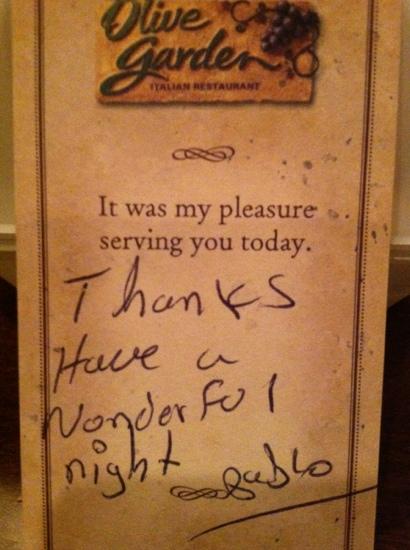 Olive
Garden
ITALIAN RESTAURANT
It was my pleasure
serving you today.
Thanks
Have a
Wonderful
night
Pablo